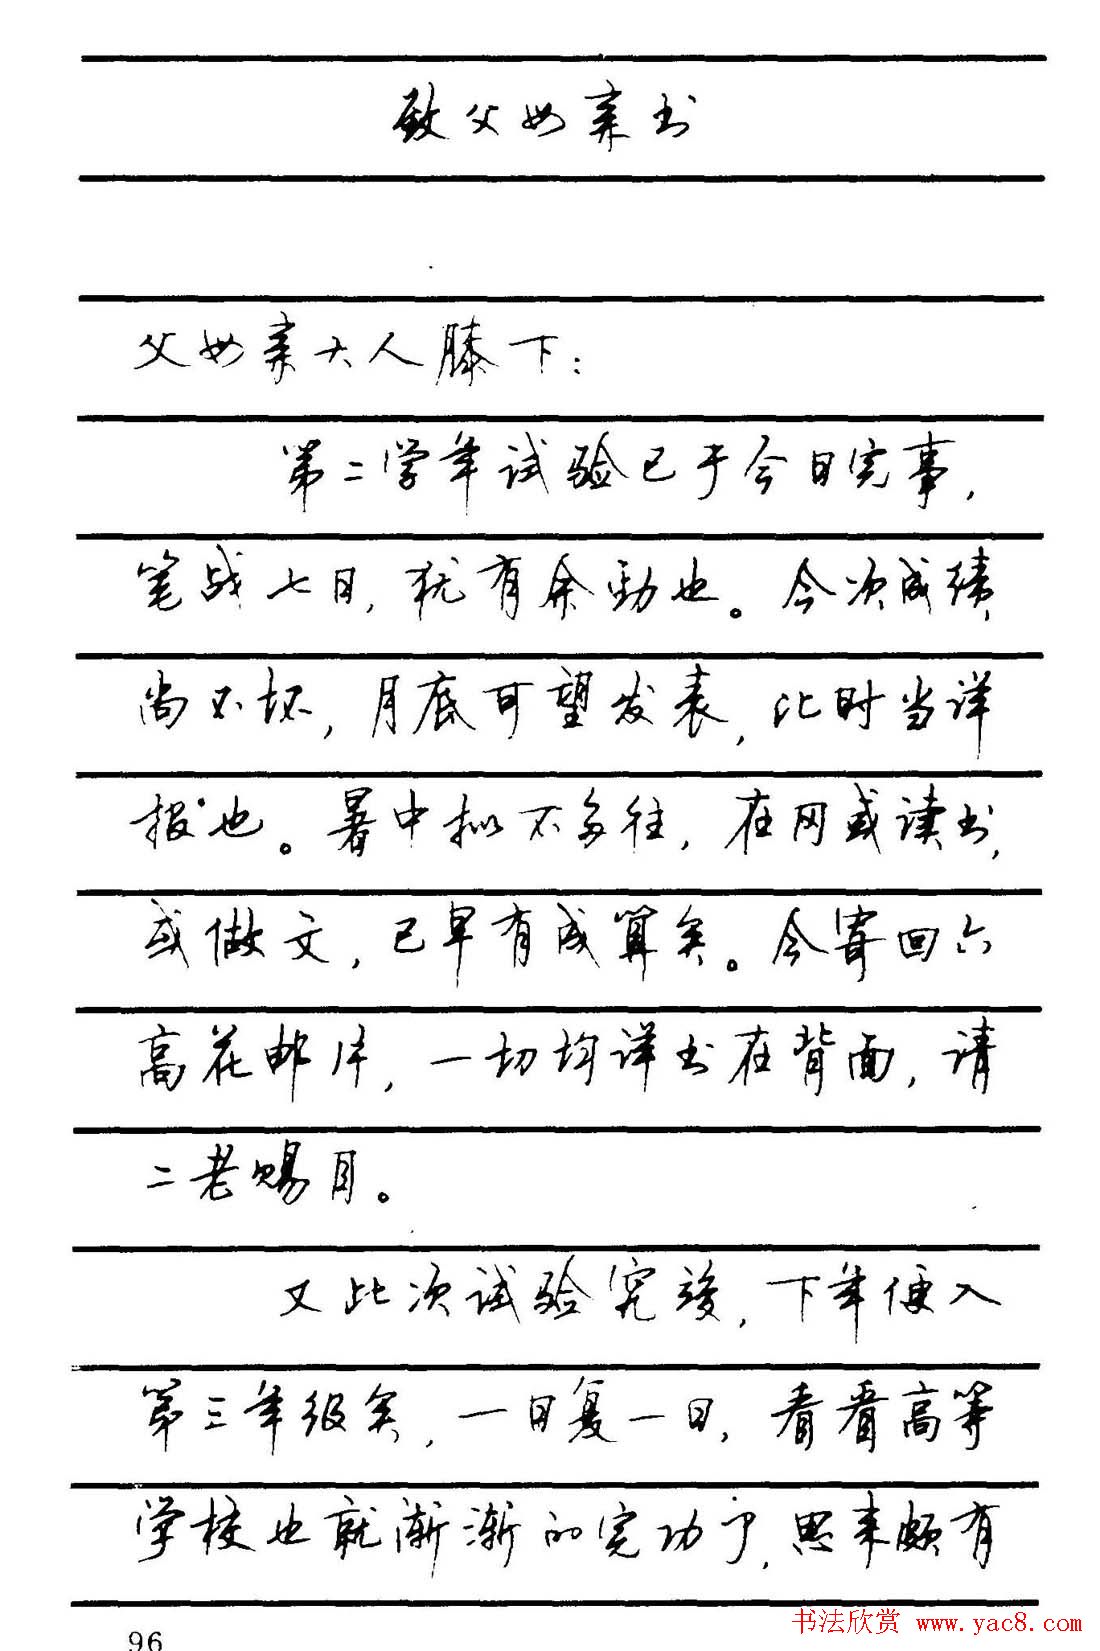 致父母亲书
父母亲大人膝下：
第二学年试验已于今日完事，
笔战七日，犹有余勁也。今次成绩
尚不坏，月底可望发表，此时当详
报也。暑中拟不多往，在冈或读书，
或做文，已早有成算矣。今寄回六
高花邮片，一切均详书在背面，请
二老赐目。
又此次试验完竣，下年便入
第三年级矣，一日复一日，看看高等
学校也就渐渐的完功了，思来颇有
96
书法欣赏 www.yac8.com